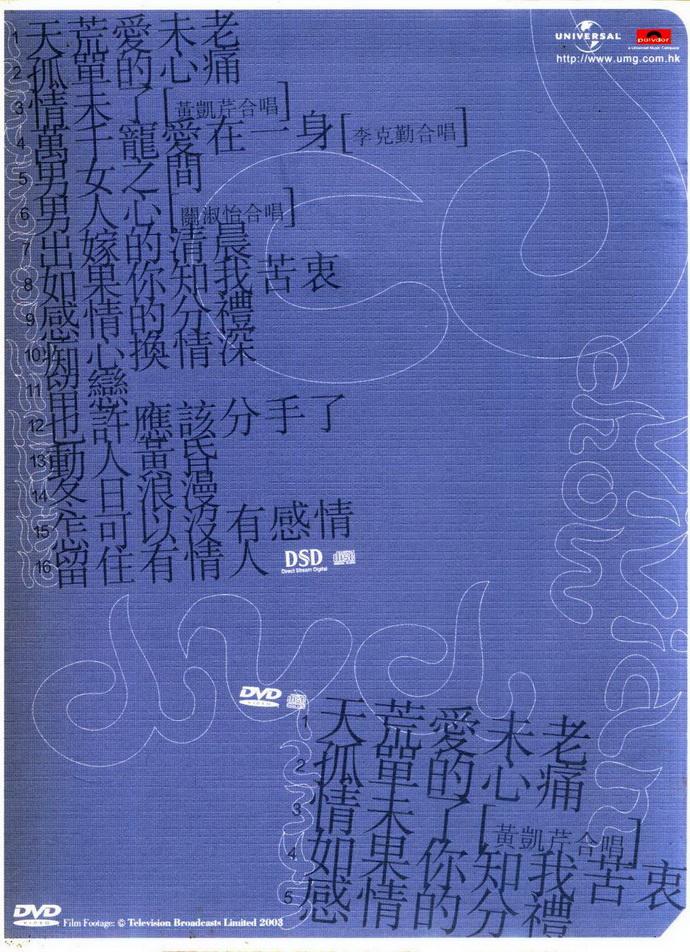 UNIVERSAL
polydor
a Universal Music Company
http://www.umg.com.hk
1 天荒愛未老
2 孤單的心痛
3 情未了[黃凱芹合唱]
4 萬千寵愛在一身[李克勤合唱]
5 男女之間
6 男人心[關淑怡合唱]
7 出嫁的清晨
8 如果你知我苦衷
9 感情的分禮
10 痴心換情深
11 留戀
12 也許應該分手了
13 動人黃昏
14 冬日浪漫
15 怎可以沒有感情
16 留住有情人
DSD
Direct Stream Digital
vivian
chow
DVD
VIDEO
1 天荒愛未老
2 孤單的心痛
3 情未了[黃凱芹合唱]
4 如果你知我苦衷
5 感情的分禮
DVD
VIDEO
Film Footage: © Television Broadcasts Limited 2003